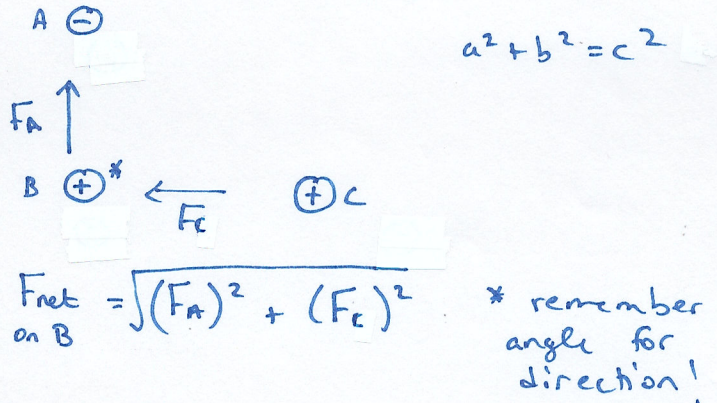 A ⊖
a² + b² = c²
F_A ↑
B ⊕* ← ⊕ C
F_C
F_net on B = √((F_A)² + (F_C)²)
* remember
angle for
direction!